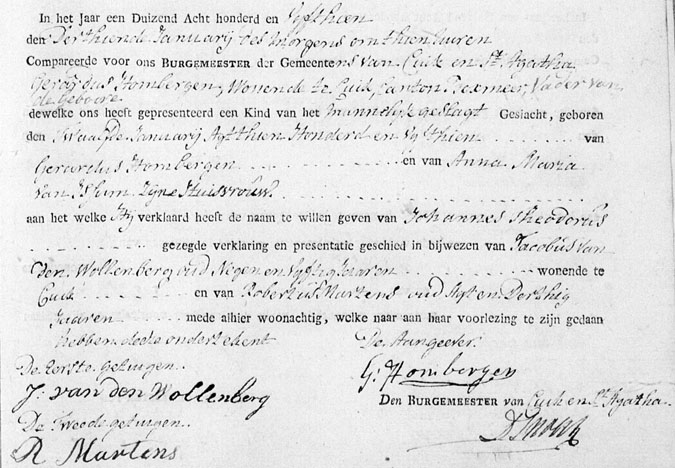 In het Jaar een Duizend Acht honderd en Vyfthien
den Derthiende Januarij des morgens om thien uuren
Compareerde voor ons BURGEMEESTER der Gemeentens van Cuik en St. Agatha
Gerardus Hombergen, Wonende te Cuik, Canton Boxmeer, Vader van
de geboore
dewelke ons heeft gepresenteerd een Kind van het mannelyk geslagt Geslacht, geboren
den Twaalfde Januarij Agthien Honderd en Vyfthien van
Gerardus Hombergen en van Anna Maria
van zyne Huisvrouw
aan het welke Hy verklaard heeft de naam te willen geven van Johannes Theodorus
gezegde verklaring en presentatie geschied in bijwezen van Jacobus van
den Wollenberg oud Negen en Vyftig Jaaren wonende te
Cuik en van Robertus Martens oud Agt en Derthig
Jaaren mede alhier woonachtig, welke naar aan haar voorlezing te zijn gedaan
hebben deese onderteekent De Aangeever
De Eerste getuigen
J. van den Wollenberg G. Hombergen
De Tweede getuigen Den BURGEMEESTER van Cuik en St. Agatha
R Martens